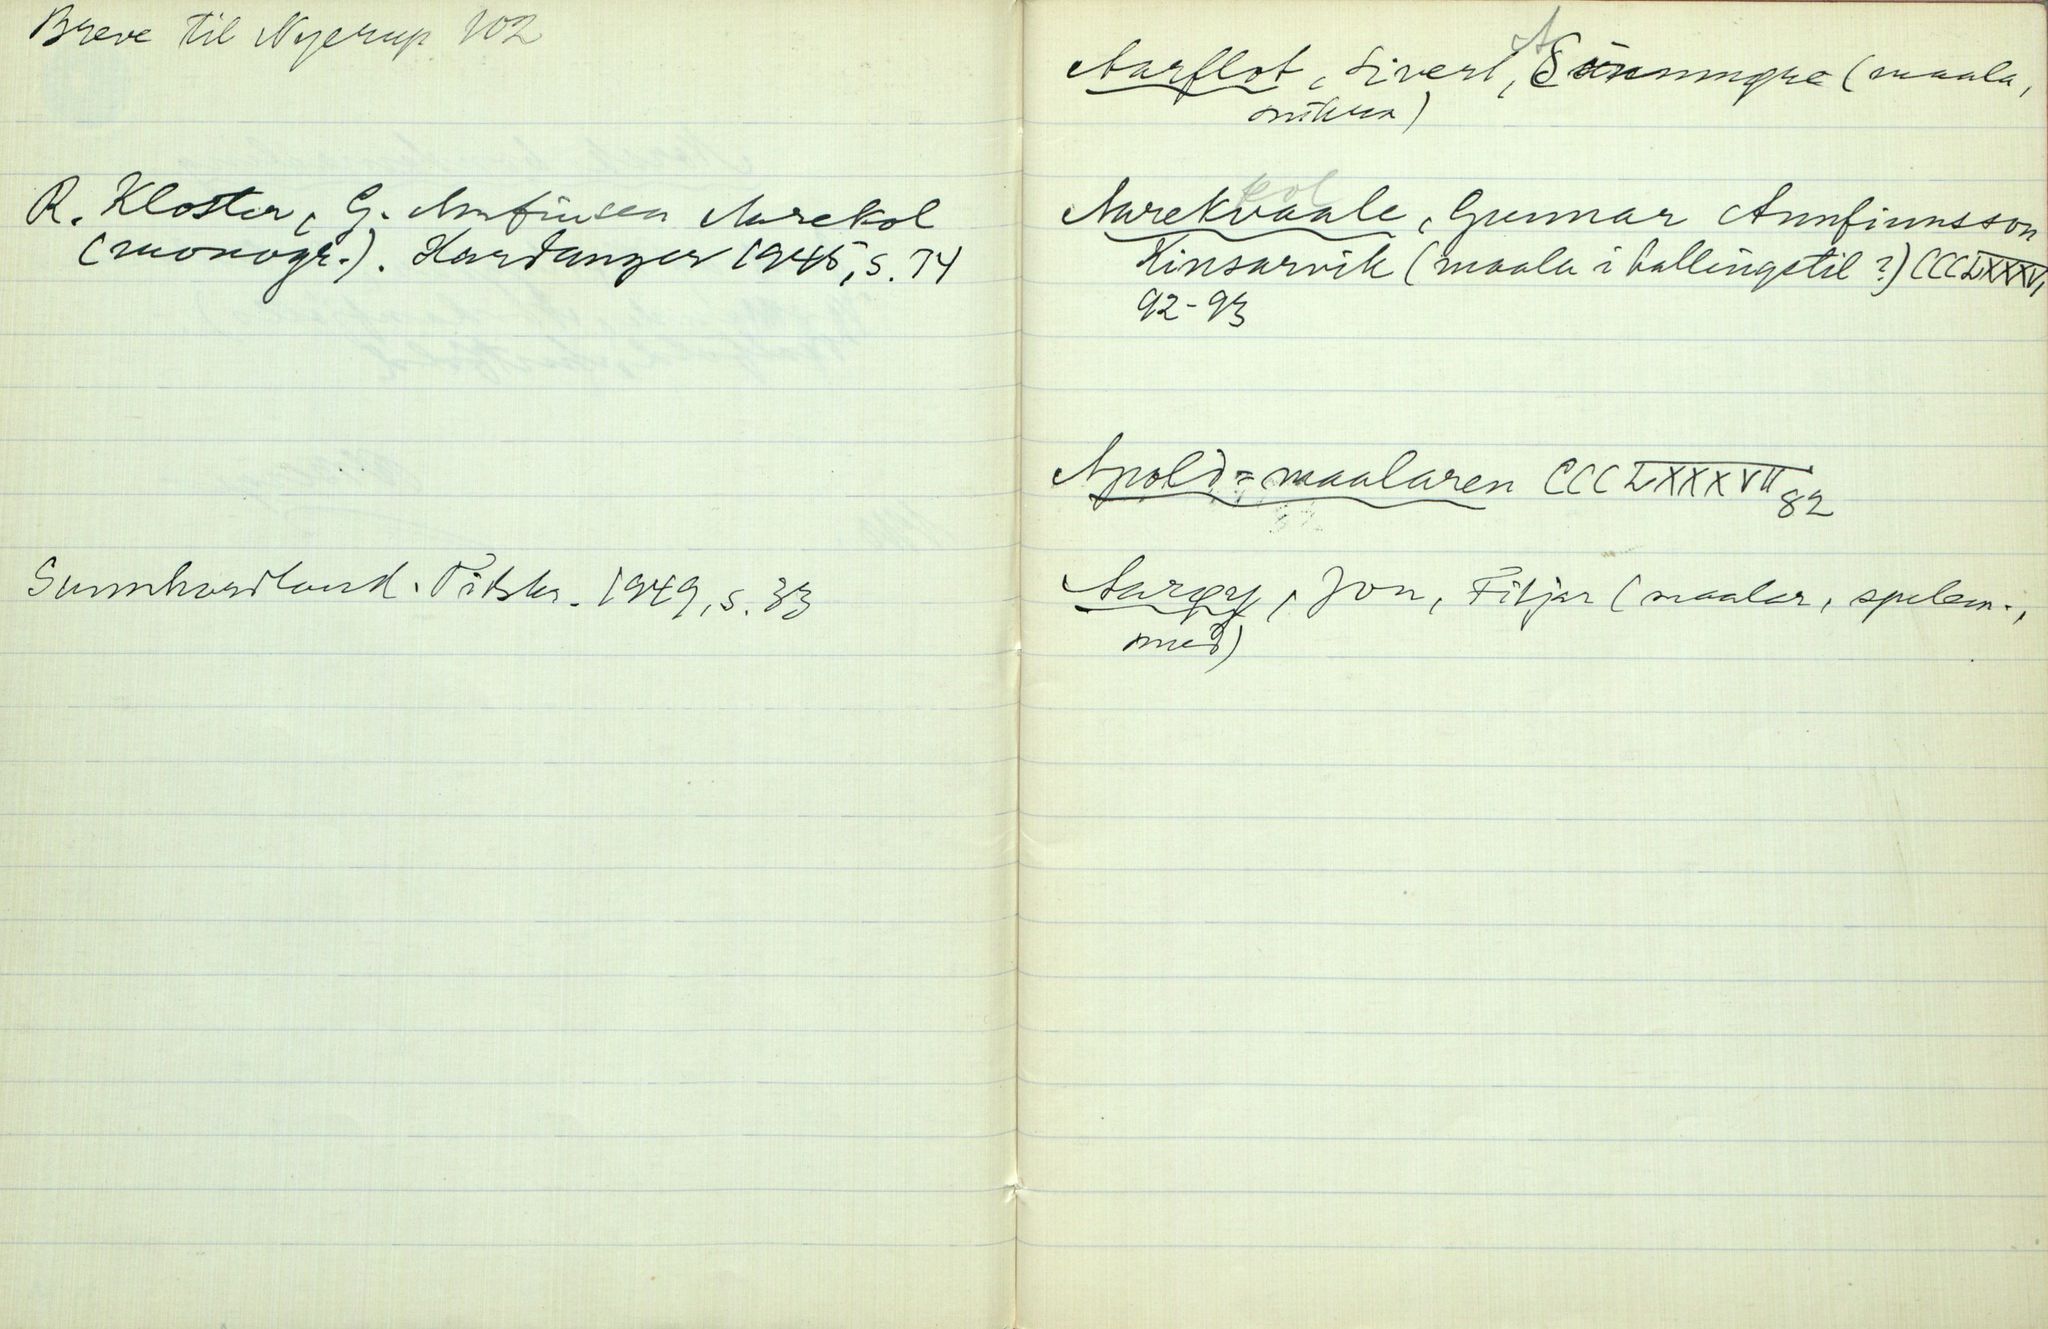 Breve til Nyerup 102
R. Kloster, G. Arnfinsen Aarekol
(monogr.). Hardanger 1945, s. 74
Sunnhordland. Tidskr. 1949, s. 33
Aarflot, Sivert, Sunnmøre (maala,
Aarekvaale, Gunnar Annfinnsson
kol
Kinsarvik (maala i hallingstil?) CCCLXXXVI
92-93
Apold=maalaren CCCLXXXVII 82
Jon, Fitjar (maalar, spelem.,
smed)